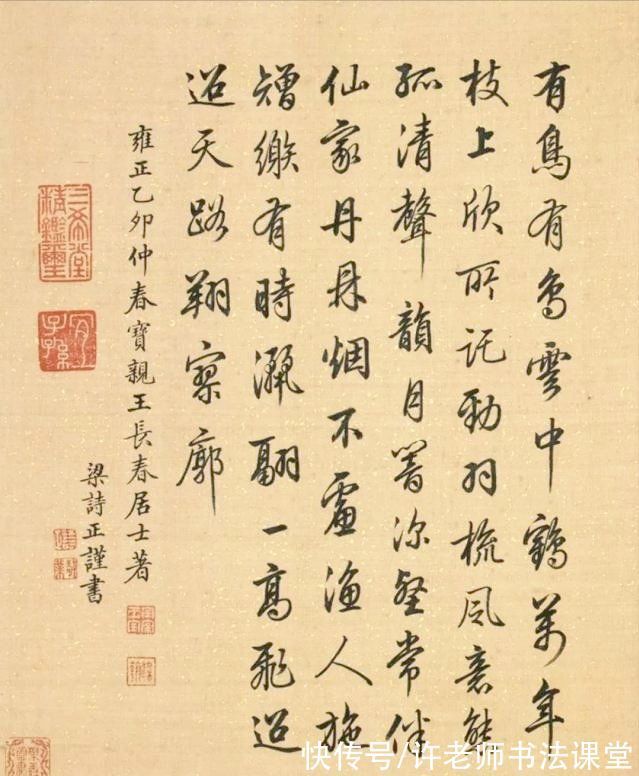 有鳥有鳥雲中鶴萬年
枝上欣所託勁羽梳風意態
孤清聲韻月深壑常伴
仙家丹鼎烟不虞漁人施
矰繳有時灑翮一高飛迢
迢天路翔寥廓
雍正乙卯仲春寶親王長春居士著
梁詩正謹書
三希堂精鑑璽
宜子孫
快传号/许老师书法课堂